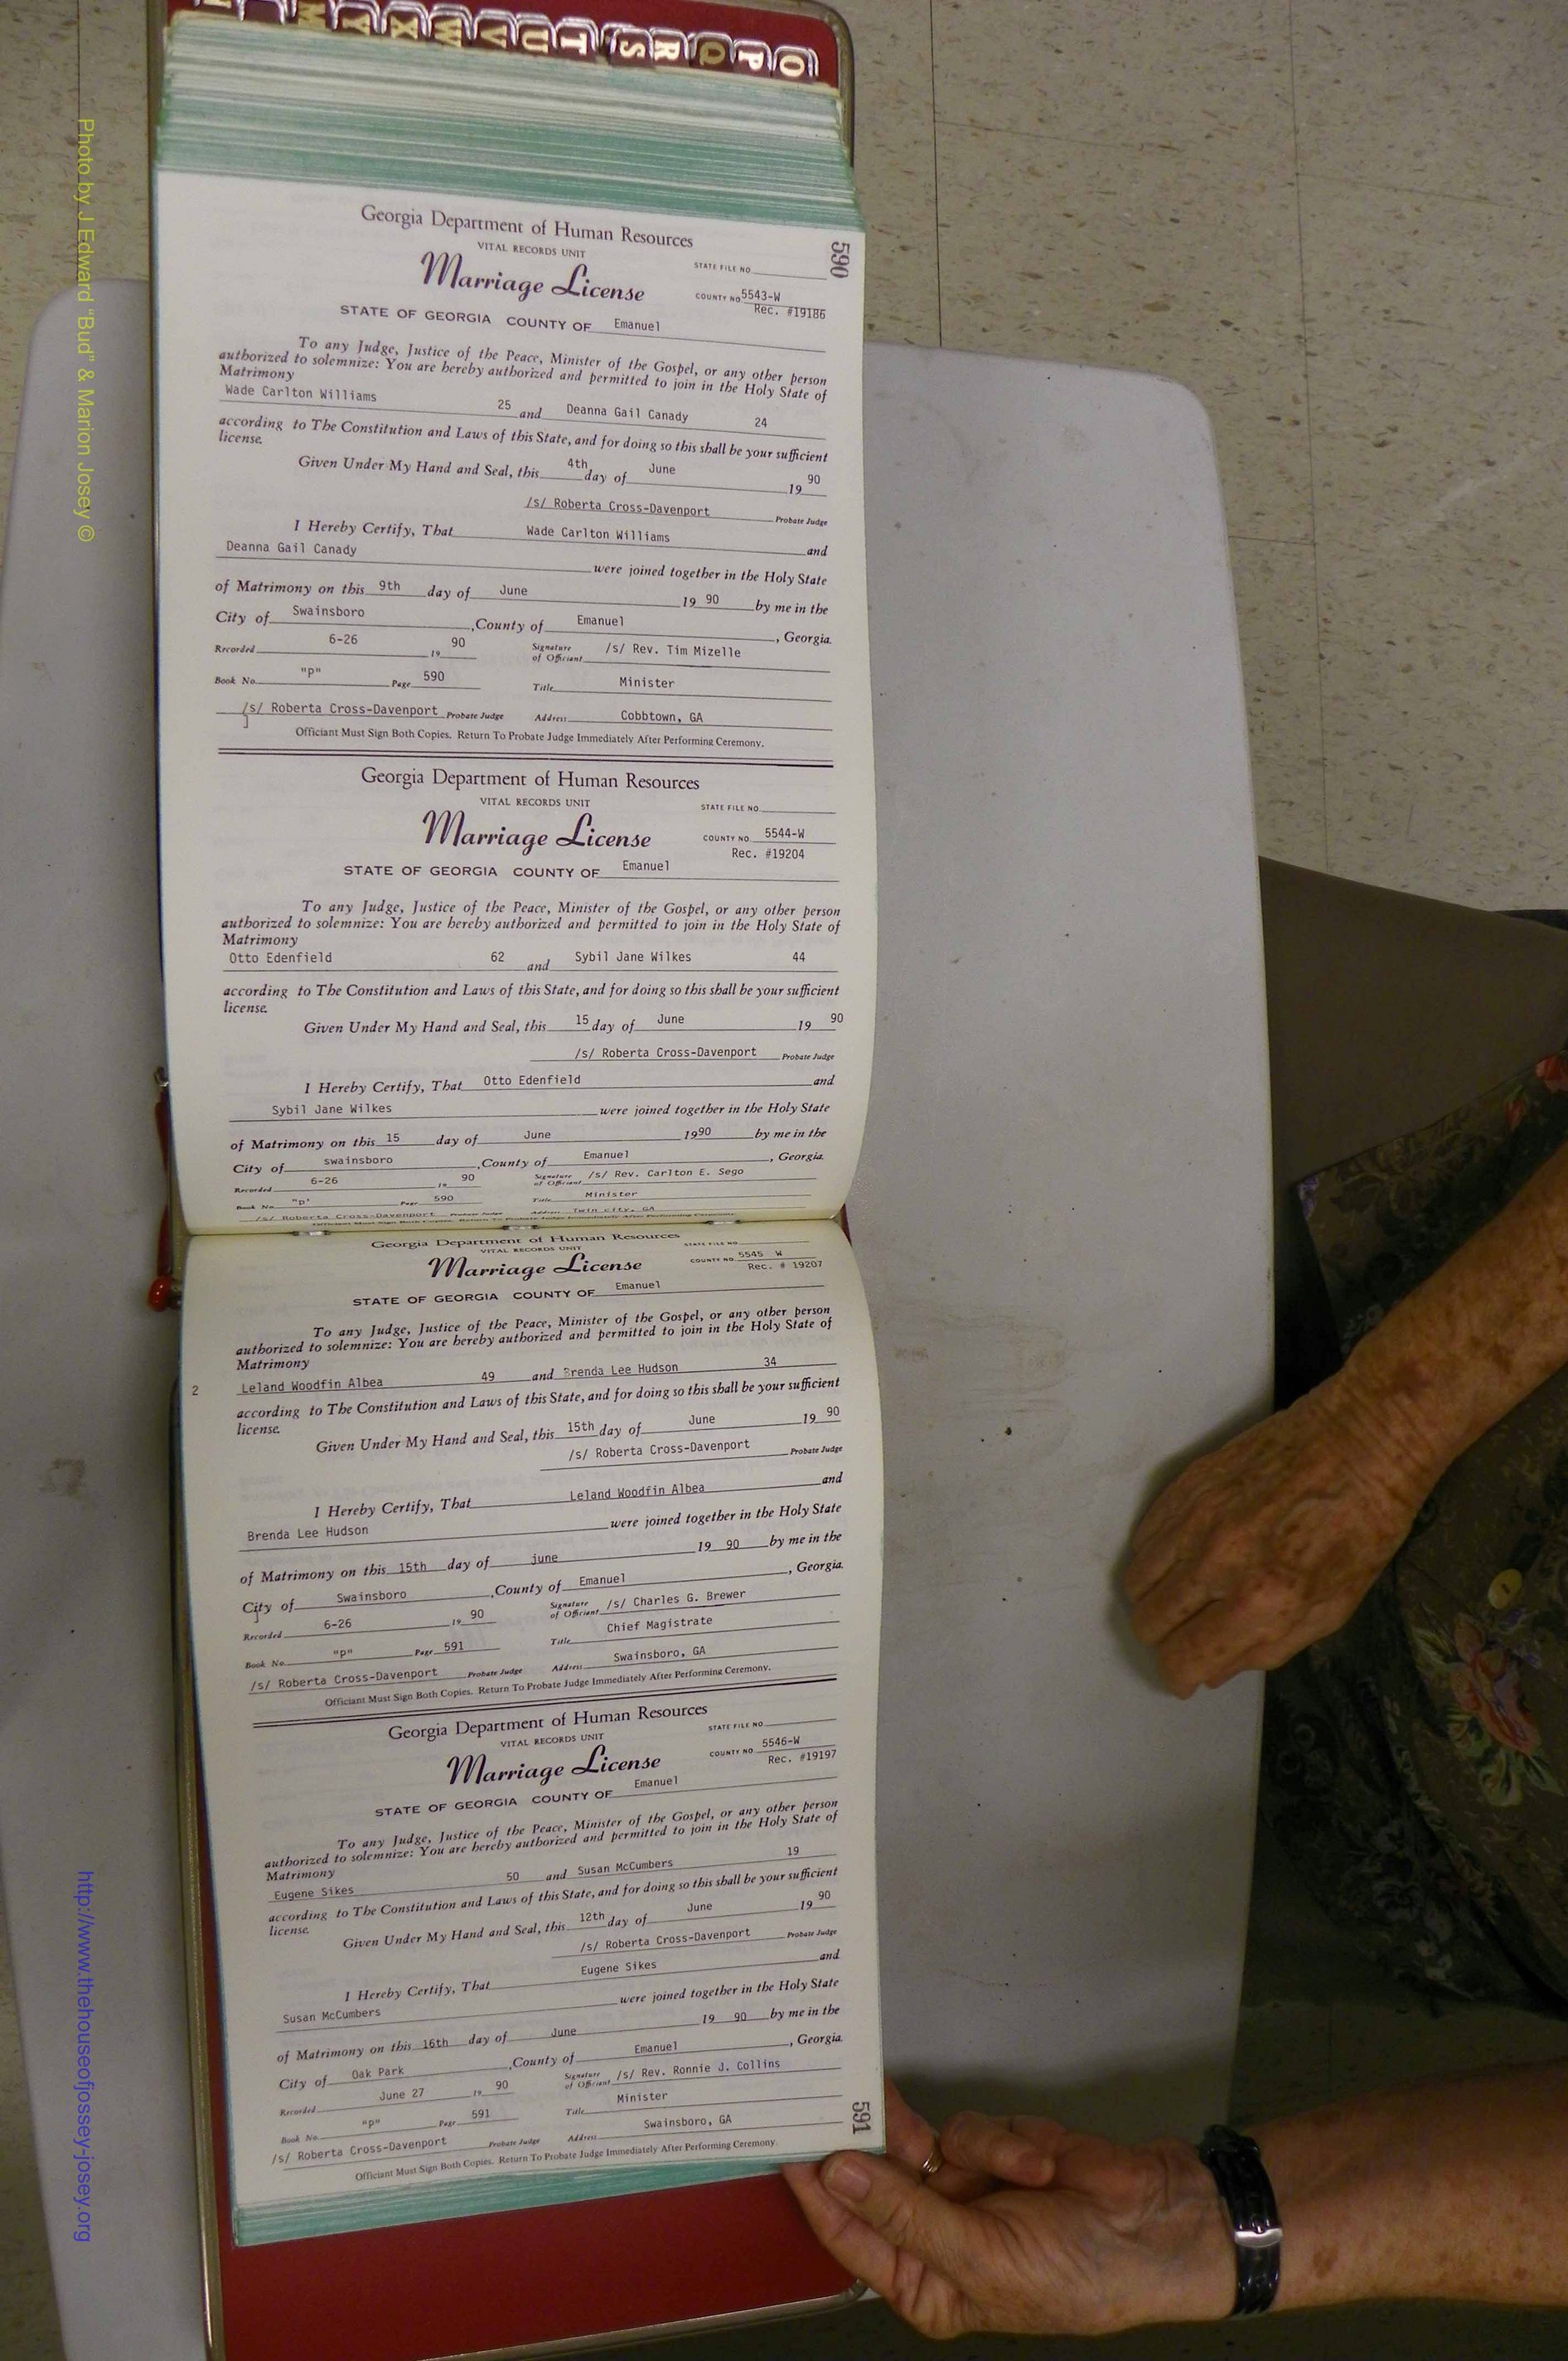 M Y X W V U T S R Q P O
Photo by J Edward "Bud" & Marion Josey ©
590
Georgia Department of Human Resources
VITAL RECORDS UNIT
STATE FILE NO.
Marriage License
COUNTY NO. 5543-W
Rec. #19186
STATE OF GEORGIA COUNTY OF Emanuel
To any Judge, Justice of the Peace, Minister of the Gospel, or any other person
authorized to solemnize: You are hereby authorized and permitted to join in the Holy State of
Matrimony
Wade Carlton Williams 25 and Deanna Gail Canady 24
according to The Constitution and Laws of this State, and for doing so this shall be your sufficient
license.
Given Under My Hand and Seal, this 4th day of June 19 90
/s/ Roberta Cross-Davenport Probate Judge
I Hereby Certify, That Wade Carlton Williams and
Deanna Gail Canady were joined together in the Holy State
of Matrimony on this 9th day of June 19 90 by me in the
City of Swainsboro, County of Emanuel, Georgia.
Recorded 6-26 19 90 Signature of Officiant /s/ Rev. Tim Mizelle
Book No. "p" Page 590 Title Minister
/s/ Roberta Cross-Davenport Probate Judge Address Cobbtown, GA
Officiant Must Sign Both Copies. Return To Probate Judge Immediately After Performing Ceremony.
Georgia Department of Human Resources
VITAL RECORDS UNIT
STATE FILE NO.
Marriage License
COUNTY NO. 5544-W
Rec. #19204
STATE OF GEORGIA COUNTY OF Emanuel
To any Judge, Justice of the Peace, Minister of the Gospel, or any other person
authorized to solemnize: You are hereby authorized and permitted to join in the Holy State of
Matrimony
Otto Edenfield 62 and Sybil Jane Wilkes 44
according to The Constitution and Laws of this State, and for doing so this shall be your sufficient
license.
Given Under My Hand and Seal, this 15 day of June 19 90
/s/ Roberta Cross-Davenport Probate Judge
I Hereby Certify, That Otto Edenfield and
Sybil Jane Wilkes were joined together in the Holy State
of Matrimony on this 15 day of June 1990 by me in the
City of swainsboro, County of Emanuel, Georgia.
Recorded 6-26 19 90 Signature of Officiant /s/ Rev. Carlton E. Sego
Book No. "p' Page 590 Title Minister
/s/ Roberta Cross-Davenport Probate Judge Address Twin city, GA
Officiant Must Sign Both Copies. Return To Probate Judge Immediately After Performing Ceremony.
Georgia Department of Human Resources
VITAL RECORDS UNIT
STATE FILE NO.
Marriage License
COUNTY NO. 5545 W
Rec. # 19207
STATE OF GEORGIA COUNTY OF Emanuel
To any Judge, Justice of the Peace, Minister of the Gospel, or any other person
authorized to solemnize: You are hereby authorized and permitted to join in the Holy State of
Matrimony
2
Leland Woodfin Albea 49 and Brenda Lee Hudson 34
according to The Constitution and Laws of this State, and for doing so this shall be your sufficient
license.
Given Under My Hand and Seal, this 15th day of June 19 90
/s/ Roberta Cross-Davenport Probate Judge
I Hereby Certify, That Leland Woodfin Albea and
Brenda Lee Hudson were joined together in the Holy State
of Matrimony on this 15th day of june 19 90 by me in the
City of Swainsboro, County of Emanuel, Georgia.
Recorded 6-26 19 90 Signature of Officiant /s/ Charles G. Brewer
Book No. "p" Page 591 Title Chief Magistrate
/s/ Roberta Cross-Davenport Probate Judge Address Swainsboro, GA
Officiant Must Sign Both Copies. Return To Probate Judge Immediately After Performing Ceremony.
Georgia Department of Human Resources
VITAL RECORDS UNIT
STATE FILE NO.
Marriage License
COUNTY NO. 5546-W
Rec. #19197
STATE OF GEORGIA COUNTY OF Emanuel
To any Judge, Justice of the Peace, Minister of the Gospel, or any other person
authorized to solemnize: You are hereby authorized and permitted to join in the Holy State of
Matrimony
Eugene Sikes 50 and Susan McCumbers 19
according to The Constitution and Laws of this State, and for doing so this shall be your sufficient
license.
Given Under My Hand and Seal, this 12th day of June 19 90
/s/ Roberta Cross-Davenport Probate Judge
I Hereby Certify, That Eugene Sikes and
Susan McCumbers were joined together in the Holy State
of Matrimony on this 16th day of June 19 90 by me in the
City of Oak Park, County of Emanuel, Georgia.
Recorded June 27 19 90 Signature of Officiant /s/ Rev. Ronnie J. Collins
Book No. "p" Page 591 Title Minister
/s/ Roberta Cross-Davenport Probate Judge Address Swainsboro, GA
Officiant Must Sign Both Copies. Return To Probate Judge Immediately After Performing Ceremony.
591
http://www.thehouseofjossey-josey.org